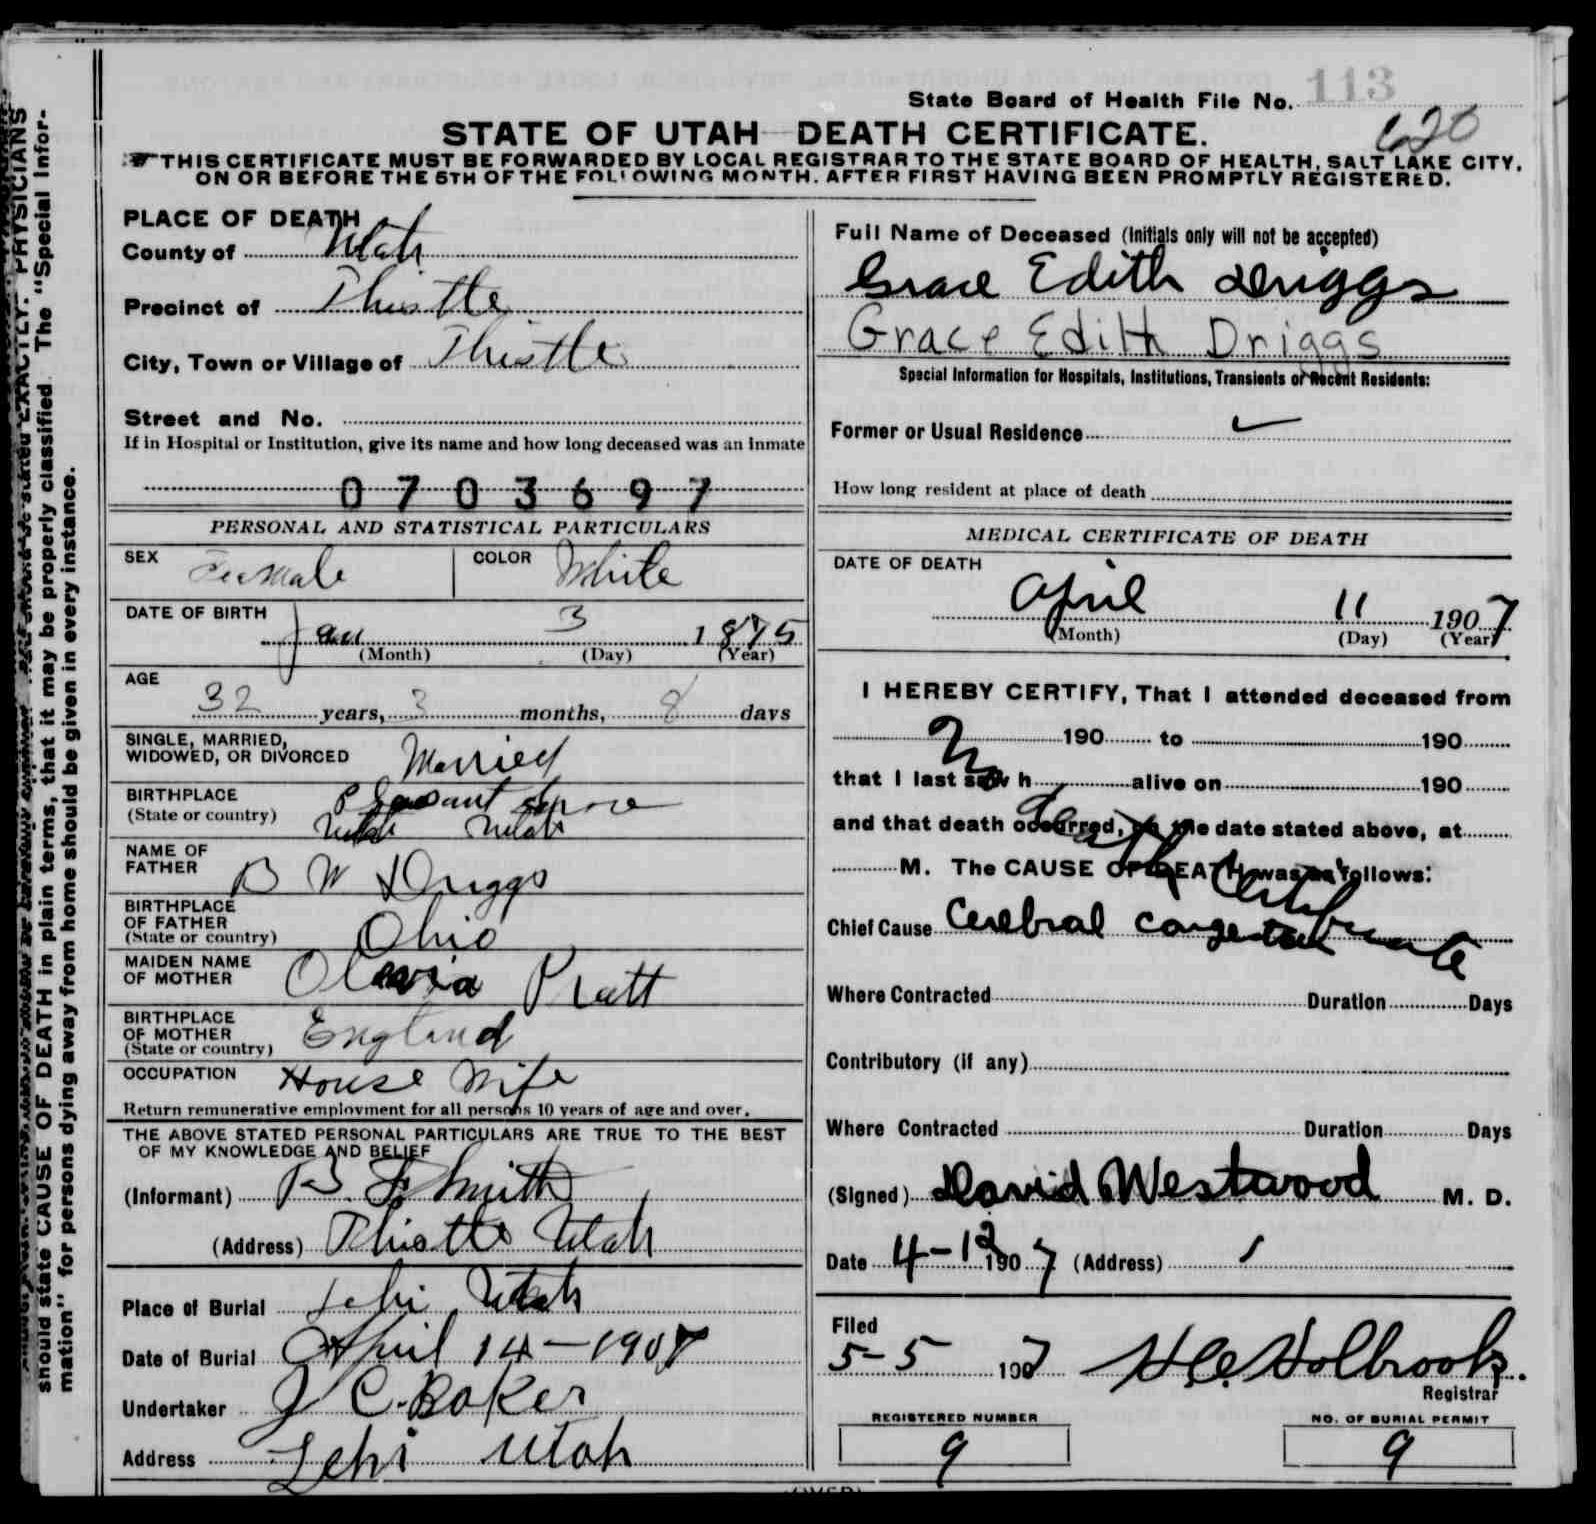 State Board of Health File No. 113
620
STATE OF UTAH DEATH CERTIFICATE.
THIS CERTIFICATE MUST BE FORWARDED BY LOCAL REGISTRAR TO THE STATE BOARD OF HEALTH, SALT LAKE CITY,
ON OR BEFORE THE 5TH OF THE FOLLOWING MONTH. AFTER FIRST HAVING BEEN PROMPTLY REGISTERED.
PLACE OF DEATH
County of Utah
Precinct of Thistle
City, Town or Village of Thistle
Street and No.
If in Hospital or Institution, give its name and how long deceased was an inmate
0703697
PERSONAL AND STATISTICAL PARTICULARS
SEX Female COLOR White
DATE OF BIRTH
Jan 3 1875
(Month) (Day) (Year)
AGE
32 years, 3 months, 8 days
SINGLE, MARRIED,
WIDOWED, OR DIVORCED Married
BIRTHPLACE Pleasant Grove
(State or country) Utah Utah
NAME OF
FATHER B W Driggs
BIRTHPLACE
OF FATHER
(State or country) Ohio
MAIDEN NAME
OF MOTHER Olivia Pratt
BIRTHPLACE
OF MOTHER
(State or country) England
OCCUPATION House Wife
Return remunerative employment for all persons 10 years of age and over.
THE ABOVE STATED PERSONAL PARTICULARS ARE TRUE TO THE BEST
OF MY KNOWLEDGE AND BELIEF
(Informant) Smith
(Address) Thistle Utah
Place of Burial Lehi Utah
Date of Burial April 14-1907
Undertaker J C. Baker
Address Lehi Utah
Full Name of Deceased (Initials only will not be accepted)
Grace Edith Driggs
Grace Edith Driggs
Special Information for Hospitals, Institutions, Transients or Recent Residents:
Former or Usual Residence
How long resident at place of death
MEDICAL CERTIFICATE OF DEATH
DATE OF DEATH
April 11 1907
(Month) (Day) (Year)
I HEREBY CERTIFY, That I attended deceased from
190 to 190
that I last saw h alive on 190
and that death occurred, on the date stated above, at
M. The CAUSE OF DEATH was as follows:
No death certificate
Chief Cause Cerebral congestion
Where Contracted Duration Days
Contributory (if any)
Where Contracted Duration Days
(Signed) David Westwood M. D.
Date 4-12 1907 (Address)
Filed
5-5 1907 H. C. Holbrook.
Registrar
REGISTERED NUMBER
9
NO. OF BURIAL PERMIT
9
should state CAUSE OF DEATH in plain terms, that it may be properly classified. The "Special Infor-
mation" for persons dying away from home should be given in every instance.